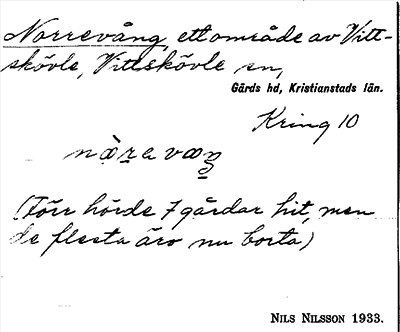 Norrevång, ett område av Vitt-
skövle, Vittskövle sn,
Gärds hd, Kristianstads län.
Kring 10
nàra væŋ
(Förr hörde 7 gårdar hit, men
de flesta äro nu borta)
NILS NILSSON 1933.